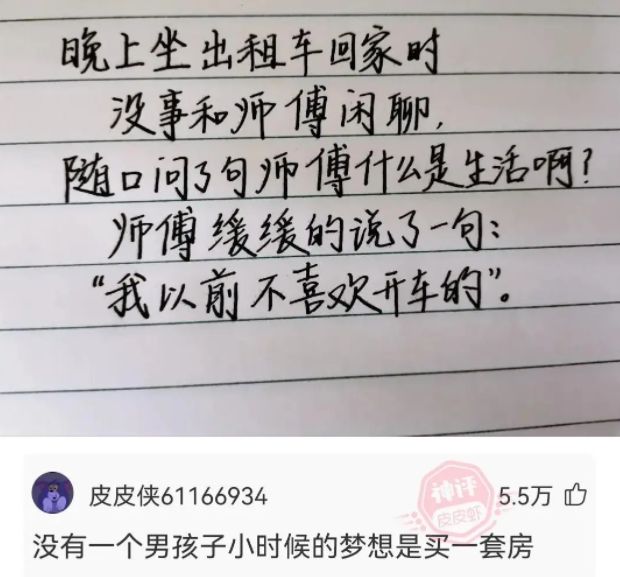 晚上坐出租车回家时
没事和师傅闲聊,
随口问了句师傅什么是生活啊?
师傅缓缓的说了一句:
“我以前不喜欢开车的”。
皮皮侠61166934
神评
皮皮虾
5.5万
没有一个男孩子小时候的梦想是买一套房